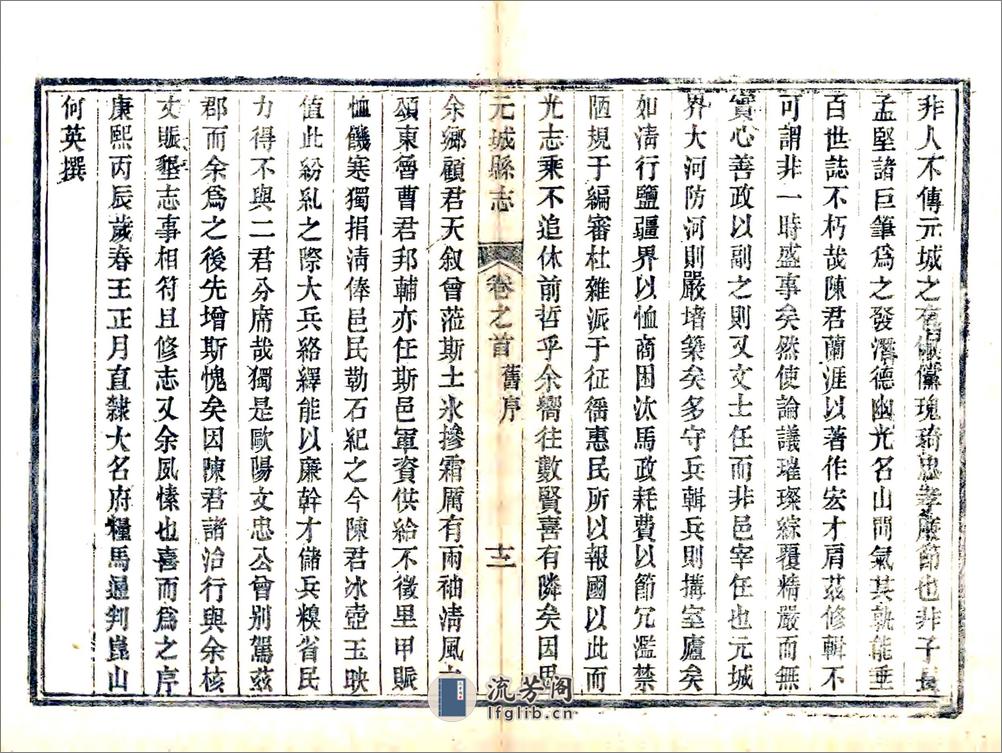 非人不傳元城之有俶儻瑰琦忠孝廉節也非子長
孟堅諸巨筆爲之發潛德幽光名山間氣其孰能垂
百世誌不朽哉陳君蘭涯以著作宏才肩茲修輯不
可謂非一時盛事矣然使論議璀璨綜覆精嚴而無
實心善政以副之則又文士任而非邑宰任也元城
界大河防河則嚴堵築矣多守兵輯兵則搆室廬矣
如淸行鹽疆界以恤商困汰馬政耗費以節冗濫禁
陋規于編審杜雜派于征徭惠民所以報國以此而
光志乘不追休前哲乎余嚮往數賢喜有隣矣因思
元城縣志 卷之首 舊序 十二
余鄉顧君天叙曾蒞斯土氷摻霜厲有兩袖淸風之
頌東魯曹君邦輔亦任斯邑軍資供給不徵里甲賑
恤饑寒獨捐淸俸邑民勒石紀之今陳君冰壺玉映
值此紛糺之際大兵絡繹能以廉幹才儲兵糗省民
力得不與二君分席哉獨是歐陽文忠公曾別駕茲
郡而余爲之後先增斯愧矣因陳君諸治行與余核
丈賑墾志事相符且修志又余夙愫也喜而爲之序
康熙丙辰歲春王正月直隸大名府糧馬通判崑山
何英撰
流芳阁
lfglib.cn